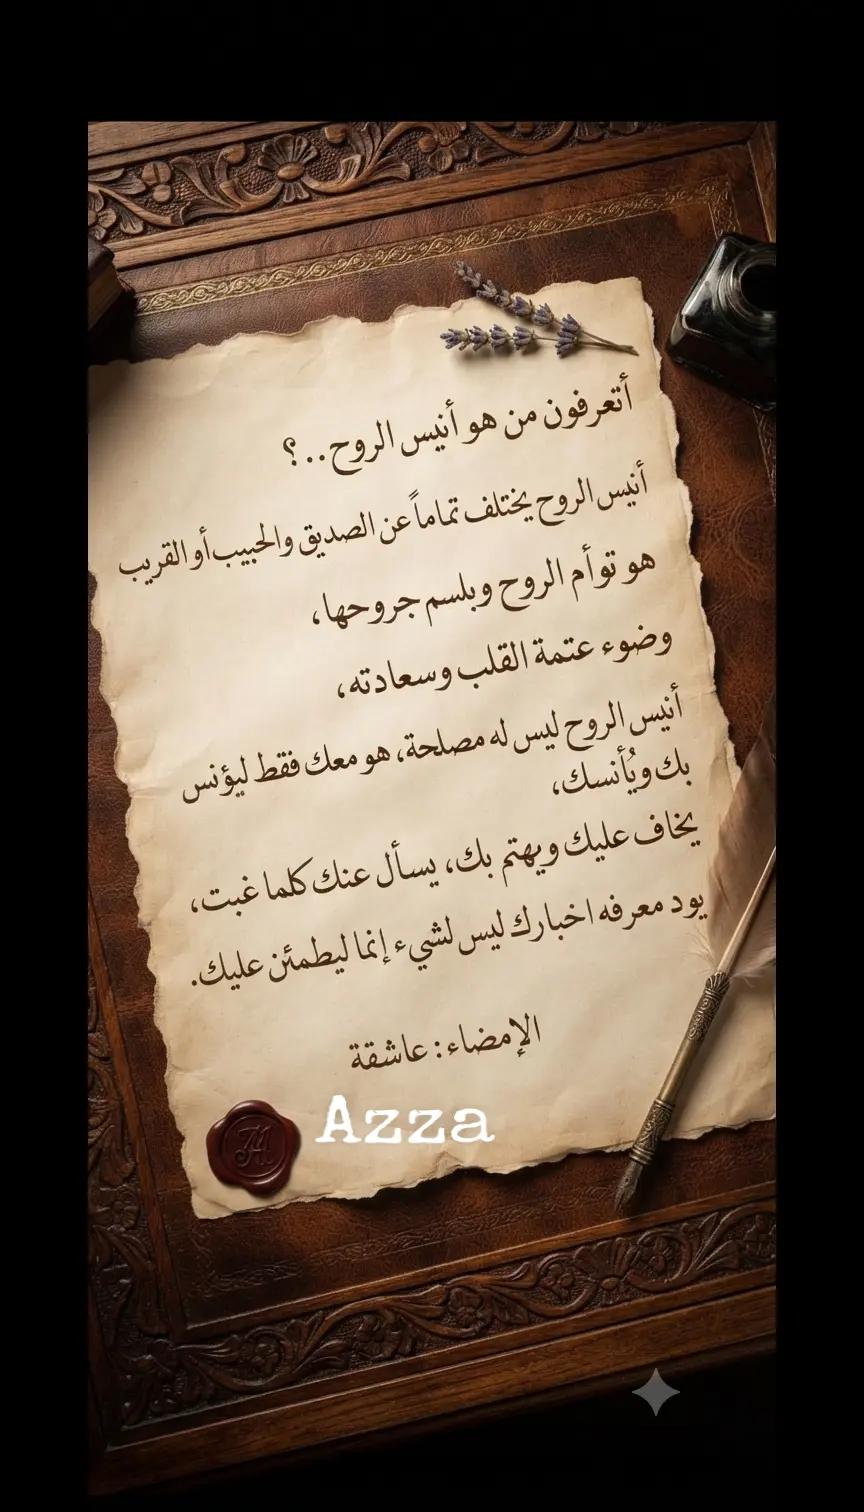 أتعرفون من هو أنيس الروح..؟
أنيس الروح يختلف تماماً عن الصديق والحبيب أو القريب
هو توأم الروح وبلسم جروحها،
وضوء عتمة القلب وسعادته،
أنيس الروح ليس له مصلحة، هو معك فقط ليؤنس
بك ويُأنسك،
يخاف عليك ويهتم بك، يسأل عنك كلما غبت،
يود معرفه اخبارك ليس لشيء إنما ليطمئن عليك.
الإمضاء: عاشقة
Azza